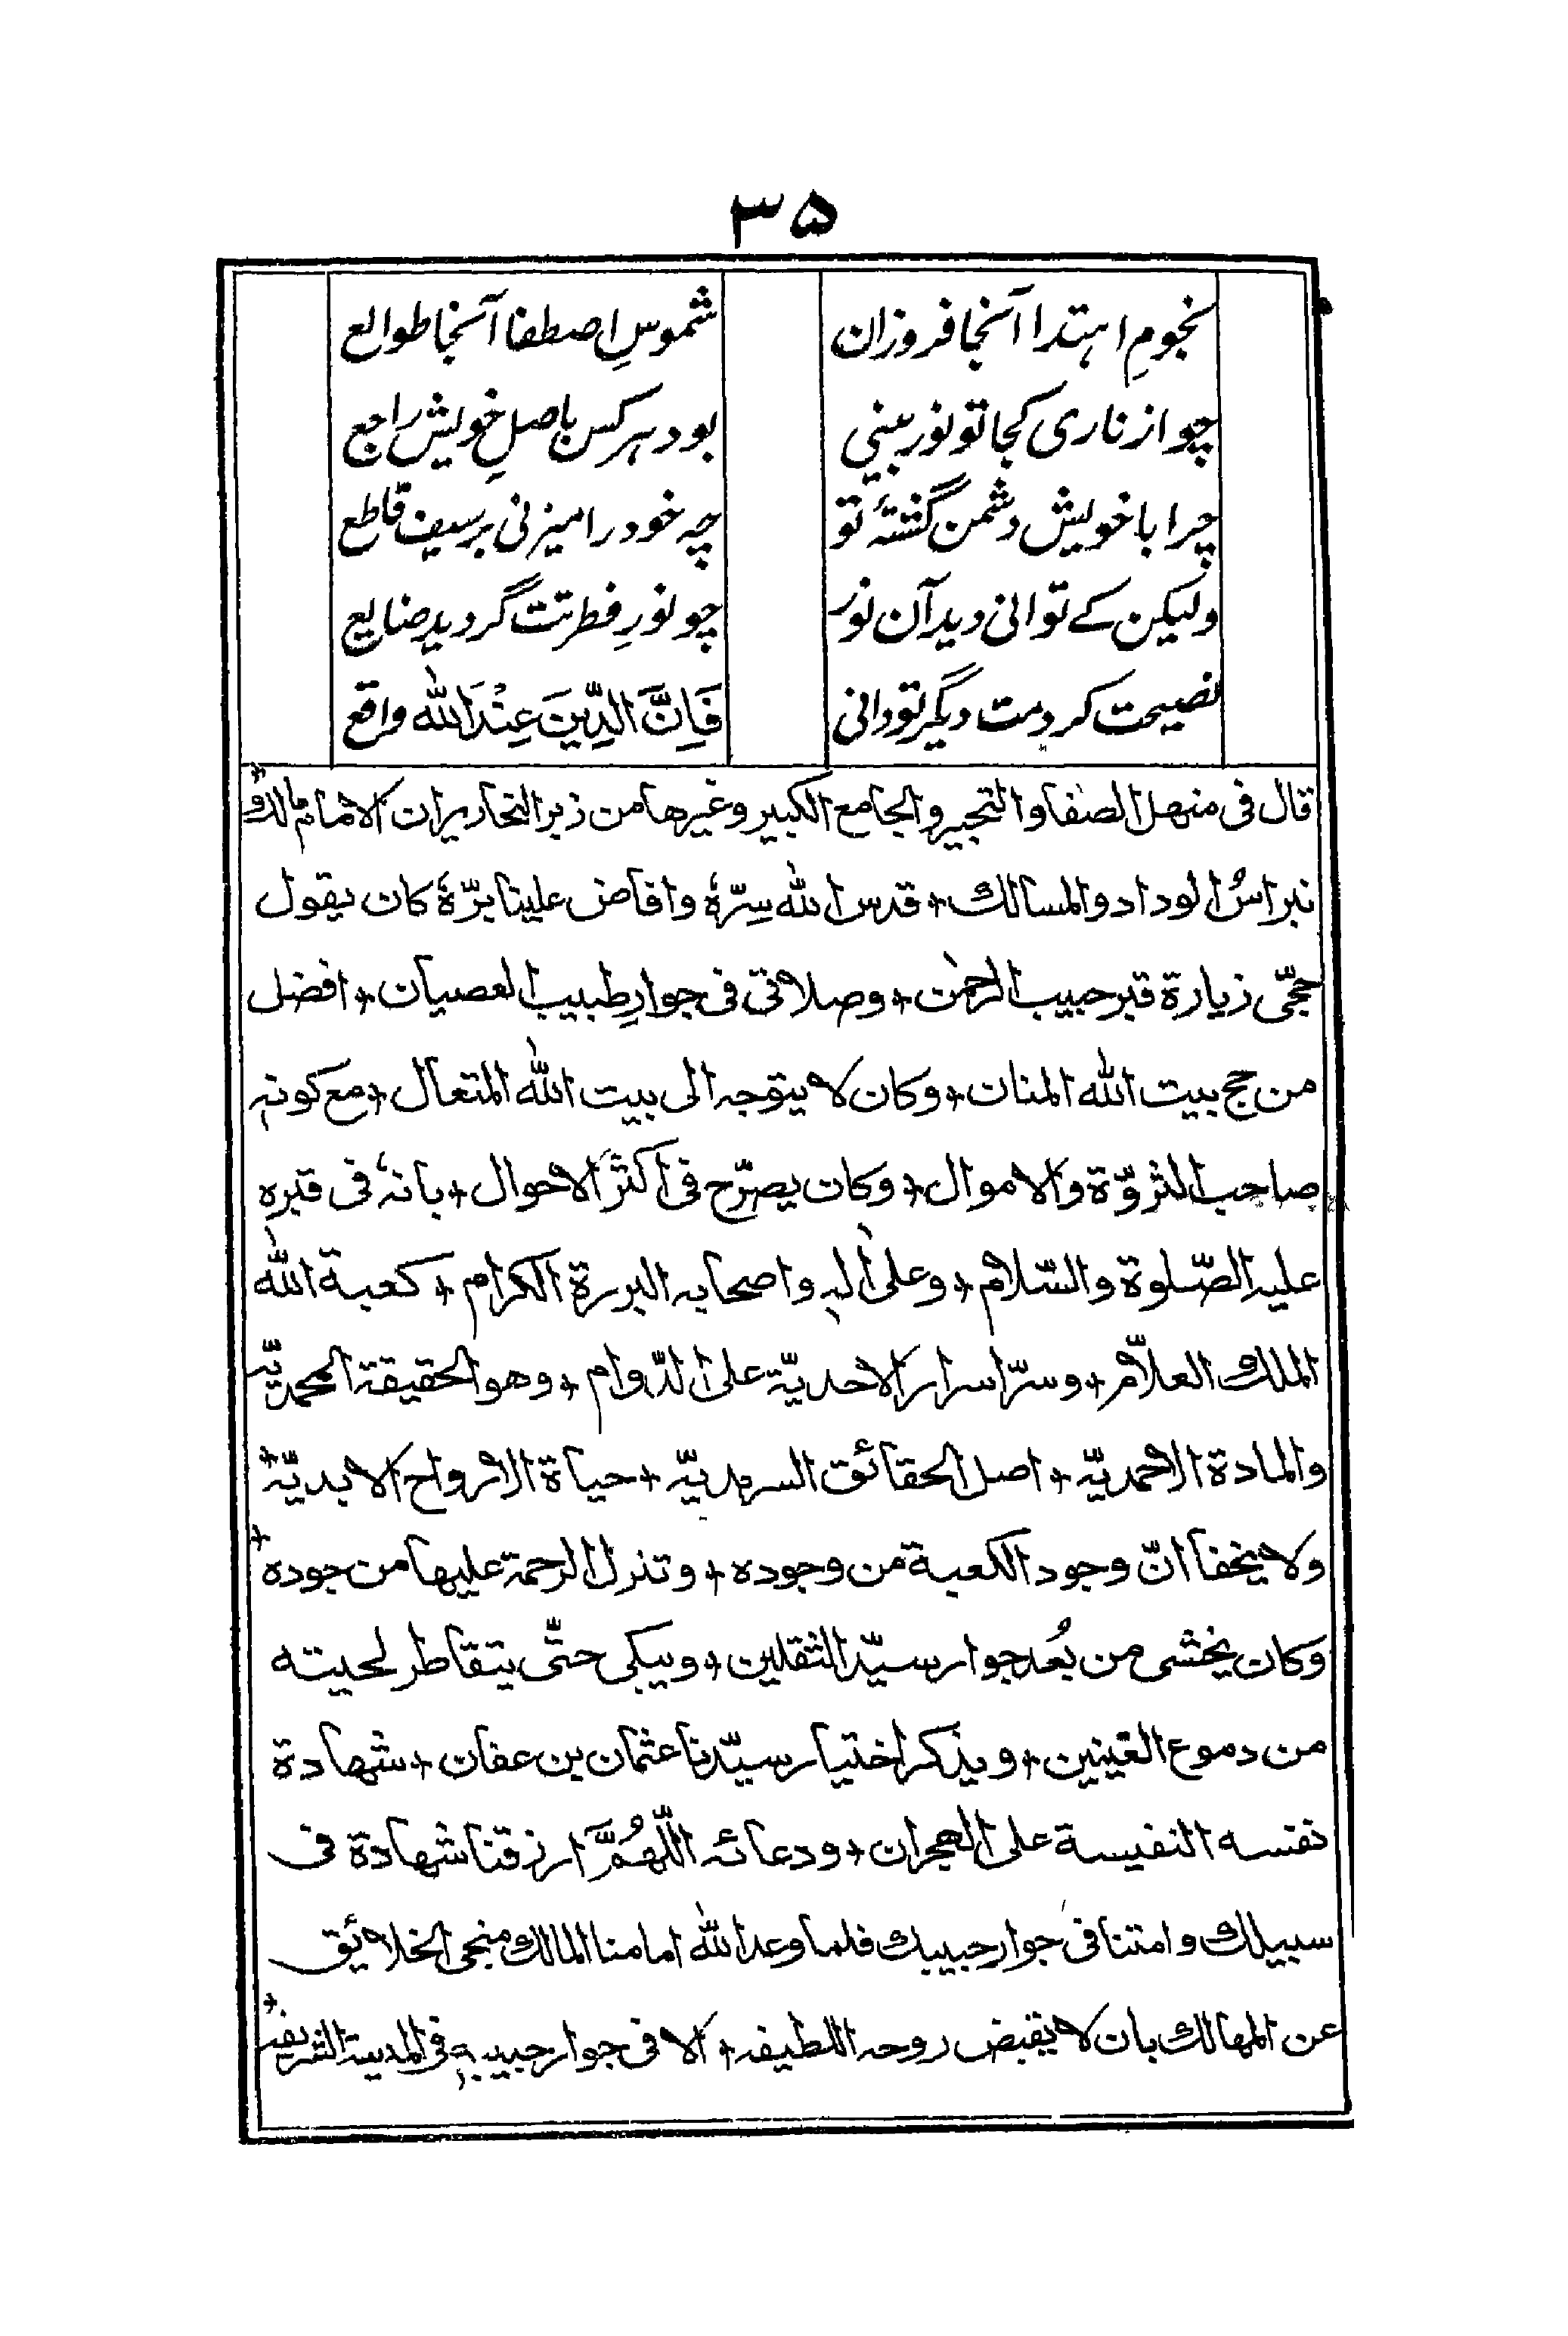 ۳۵
نجومِ اہتدا آنجا فروزان شموسِ اصطفا آنجا طوالع
چو از ناری کجا تو نور بینی بود ہر کس باصلِ خویش راجع
چرا با خویش دشمن گشتۂ تو چہ خود را میزنی بر سیف قاطع
ولیکن کے توانی دید آن نور چو نورِ فطرتت گردید ضایع
نصیحت کردمت دیگر تو دانی فَاِنَّ الدِّیْنَ عِنْدَ اللہ واقع
قال فی منھل الصفا والتجیر والجامع الکبیر وغیرھا من زبر النحاریر ان الامام مالک
نبراسُ الوداد والمسالک + قدس اللہ سِرّہٗ وافاض علینا برّہٗ کان یقول
حجّی زیارۃ قبر حبیب الرحمٰن + وصلاتی فی جوارِ طبیب العصیان + افضل
من حج بیت اللہ المنان + وکان لا یتوجہ الی بیت اللہ المتعال + مع کونہٖ
صاحب الثروّۃ والاموال + وکان یصرّح فی اکثر الاحوال + بانہٗ فی قبرہ
علیہ الصّلوۃ والسّلام + وعلیٰ اٰلہٖ واصحابہ البررۃ الکرام + کعبۃ اللہ
الملک العلّام + وسرّ اسرار الاحدیّۃ علی الدّوام + وھو الحقیقۃ المحمدیّہ
والمادۃ الاحمدیّہ + اصل الحقائق السرمدیّہ + حیاۃ الارواح الابدیّۃ +
ولا یخفا انّ وجود الکعبۃ من وجودہ + وتنزل الرحمۃ علیھا من جودہ +
وکان یخشی من بُعد جوار سیّد الثقلین + ویبکی حتّی یتقاطر لحیتہ
من دموع العینین + ویذکر اختیار سیّدنا عثمان بن عفان + شھادۃ
نفسہ النفیسۃ علی الھجران + ودعائہ اللّٰھُمَّ ارزقنا شھادۃ فی
سبیلک وامتنا فی جوار حبیبک فلما وعد اللہ امامنا المالک منجی الخلائق
عن المھالک بان لا یقبض روحہ اللطیفہ + الا فی جوار حبیبہٖ فی المدینۃ الشریفہ +